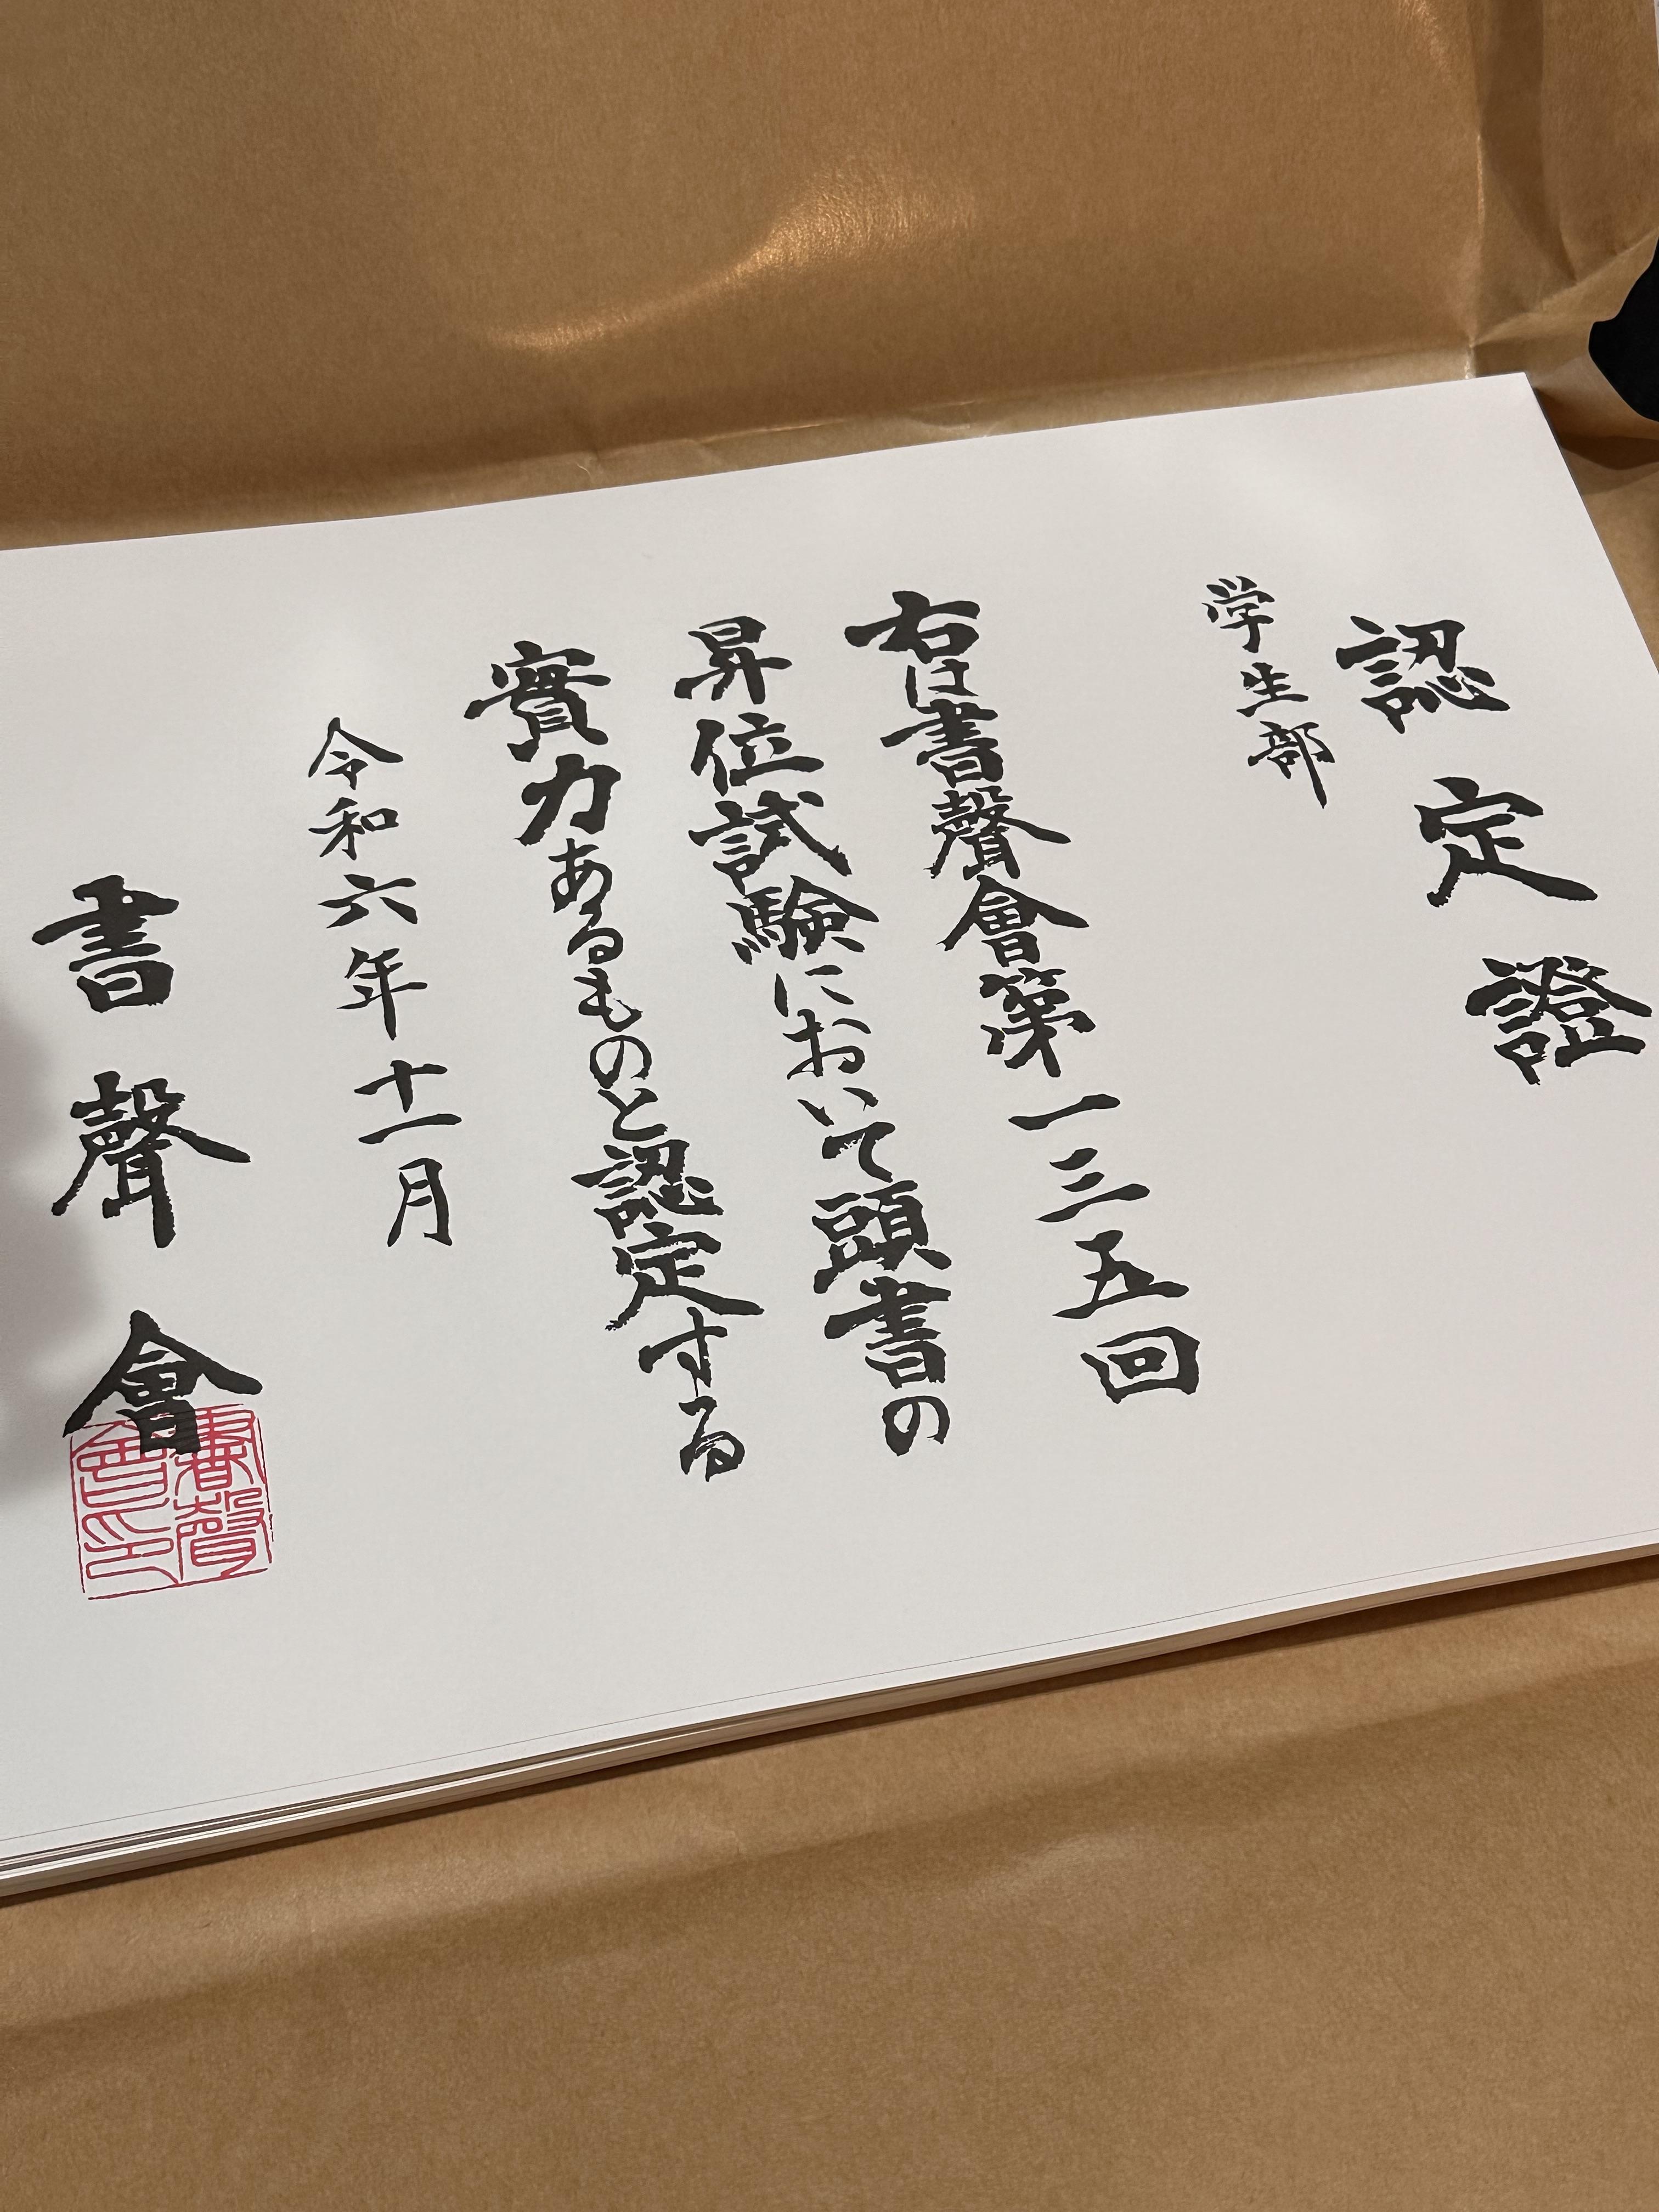 認定證
学生部
右は書聲會第一三五回
昇位試験において頭書の
實力あるものと認定する
令和六年十一月
書聲會
書聲
會印